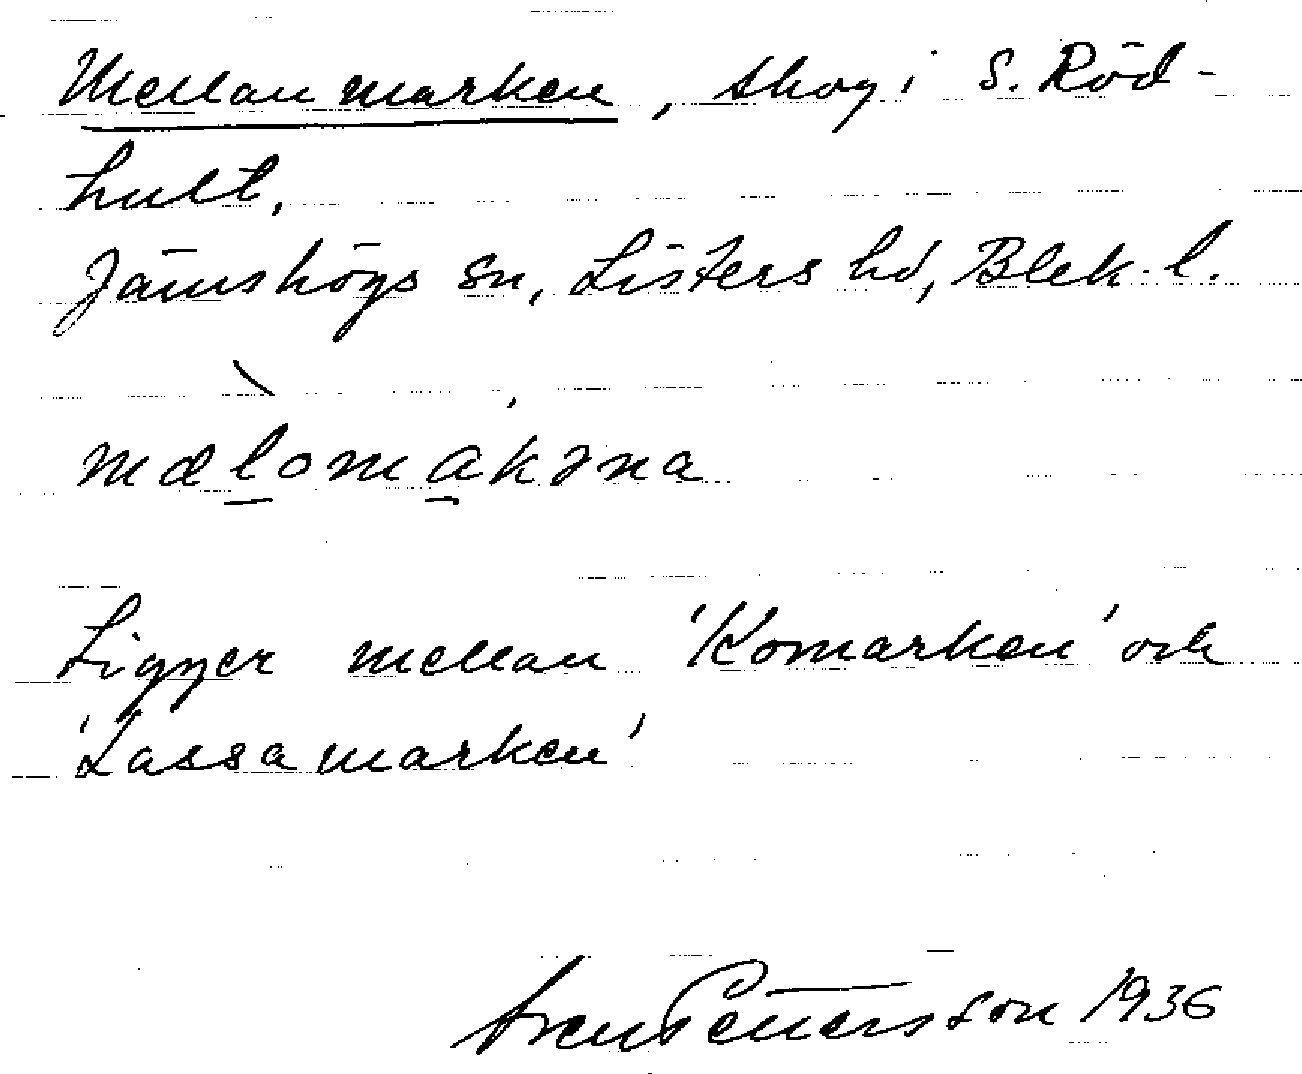 Mellanmarken, skog i S. Röd-
hult,
Jämshögs sn, Listers hd, Blek. l.
mælomakəna
Ligger mellan 'Komarken' och
'Lassamarken'
Sven Pettersson 1936